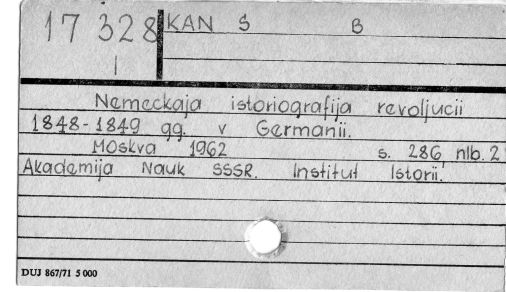 17 328 KAN S B
1
Nemeckaja istoriografija revoljucii
1848-1849 gg. v Germanii.
Moskva 1962 s. 286, nlb. 2
Akademija Nauk SSSR. Institut Istorii.
DUJ 867/71 5 000